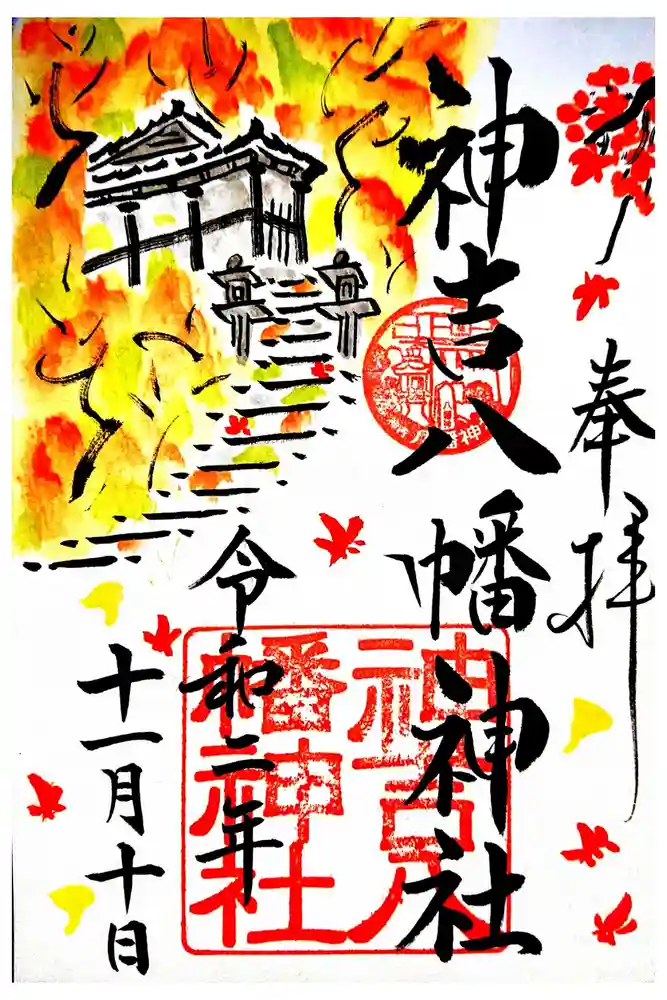 奉拝
神吉八幡神社
令和二年
十一月十日
神吉八
幡神社